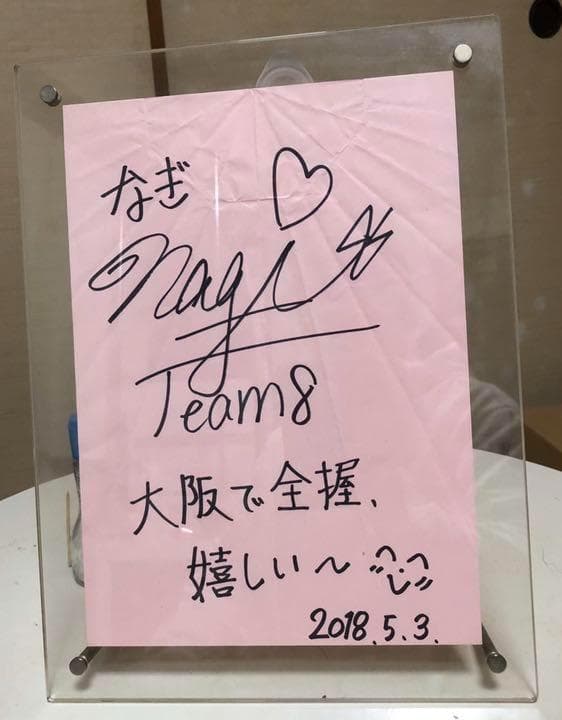 なぎ
Nagi
Team8
大阪で全握、
嬉しい～
2018.5.3.